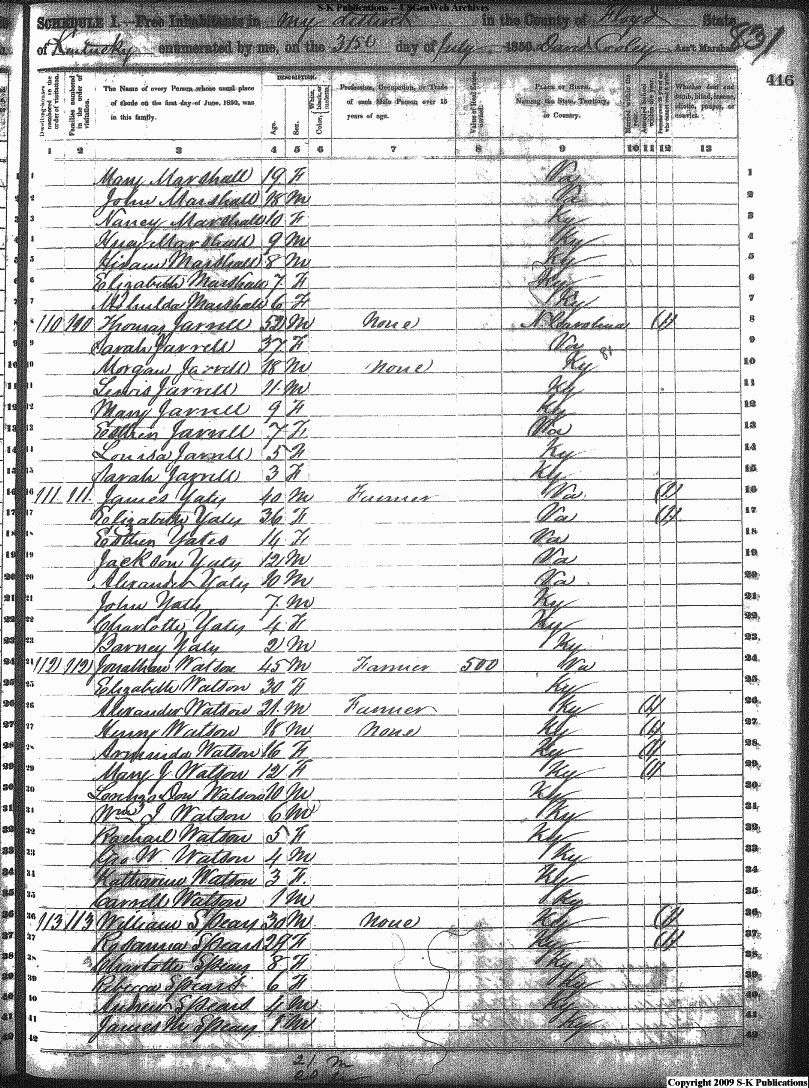 S-K Publications – USGenWeb Archives
SCHEDULE I.—Free Inhabitants in My district in the County of Floyd State
of Kentucky enumerated by me, on the 31st day of July 1850. David Cooley Ass't Marshal. 831
416
DESCRIPTION.
Dwelling-houses numbered in the order of visitation. Families numbered in the order of visitation. The Name of every Person whose usual place of abode on the first day of June, 1850, was in this family. Age. Sex. Color Profession, Occupation, or Trade of each Male Person over 15 years of age. Value of Real Estate owned. PLACE OF BIRTH. Naming the State, Territory, or Country. Married within the year. Whether deaf and dumb, blind, insane, idiotic, pauper, or convict.
1 2 3 4 5 6 7 8 9 10 11 12 13
1 Mary Marshall 19 F Va 1
2 John Marshall 18 M Va 2
3 Nancy Marshall 10 F Ky 3
4 Marshall 9 M Ky 4
5 Hiram Marshall 8 M Ky 5
6 Elizabeth Marshall 7 F Ky 6
7 Marshall 6 F Ky 7
8 110 110 Thomas Jarrell 52 M None N Carolina (1) 8
9 Sarah Jarrell 37 F Va 9
10 Morgan Jarrell 18 M None Ky 81 10
11 Lewis Jarrell 11 M Ky 11
12 Mary Jarrell 9 F Ky 12
13 Jarrell 7 F Va 13
14 Louisa Jarrell 5 F Ky 14
15 Sarah Jarrell 3 F Ky 15
16 111 111 James Yates 40 M Farmer Va (1) 16
17 Elizabeth Yates 36 F Va (1) 17
18 Yates 14 F Va 18
19 Jackson Yates 12 M Va 19
20 Alexander Yates 10 M Va 20
21 John Yates 7 M Ky 21
22 Charlotte Yates 4 F Ky 22
23 Barney Yates 2 M Ky 23
24 112 112 Jonathan Watson 45 M Farmer 500 Va 24
25 Elizabeth Watson 30 F Ky 25
26 Alexander Watson 21 M Farmer Ky (1) 26
27 Henry Watson 18 M None Ky (1) 27
28 Arminda Watson 16 F Ky (1) 28
29 Mary J Watson 12 F Ky (1) 29
30 Lorenzo Dow Watson 10 M Ky 30
31 Wm J Watson 6 M Ky 31
32 Rachael Watson 5 F Ky 32
33 Geo W Watson 4 M Ky 33
34 Katharine Watson 3 F Ky 34
35 Watson 1 M Ky 35
36 113 113 William Spears 30 M None Ky (1) 36
37 Spears 29 F Ky (1) 37
38 Charlotte Spears 8 F Ky 38
39 Rebecca Spears 6 F Ky 39
40 Andrew Spears 4 M Ky 40
41 James M Spears 1 M Ky 41
42 42
21 M
20
Copyright 2009 S-K Publications